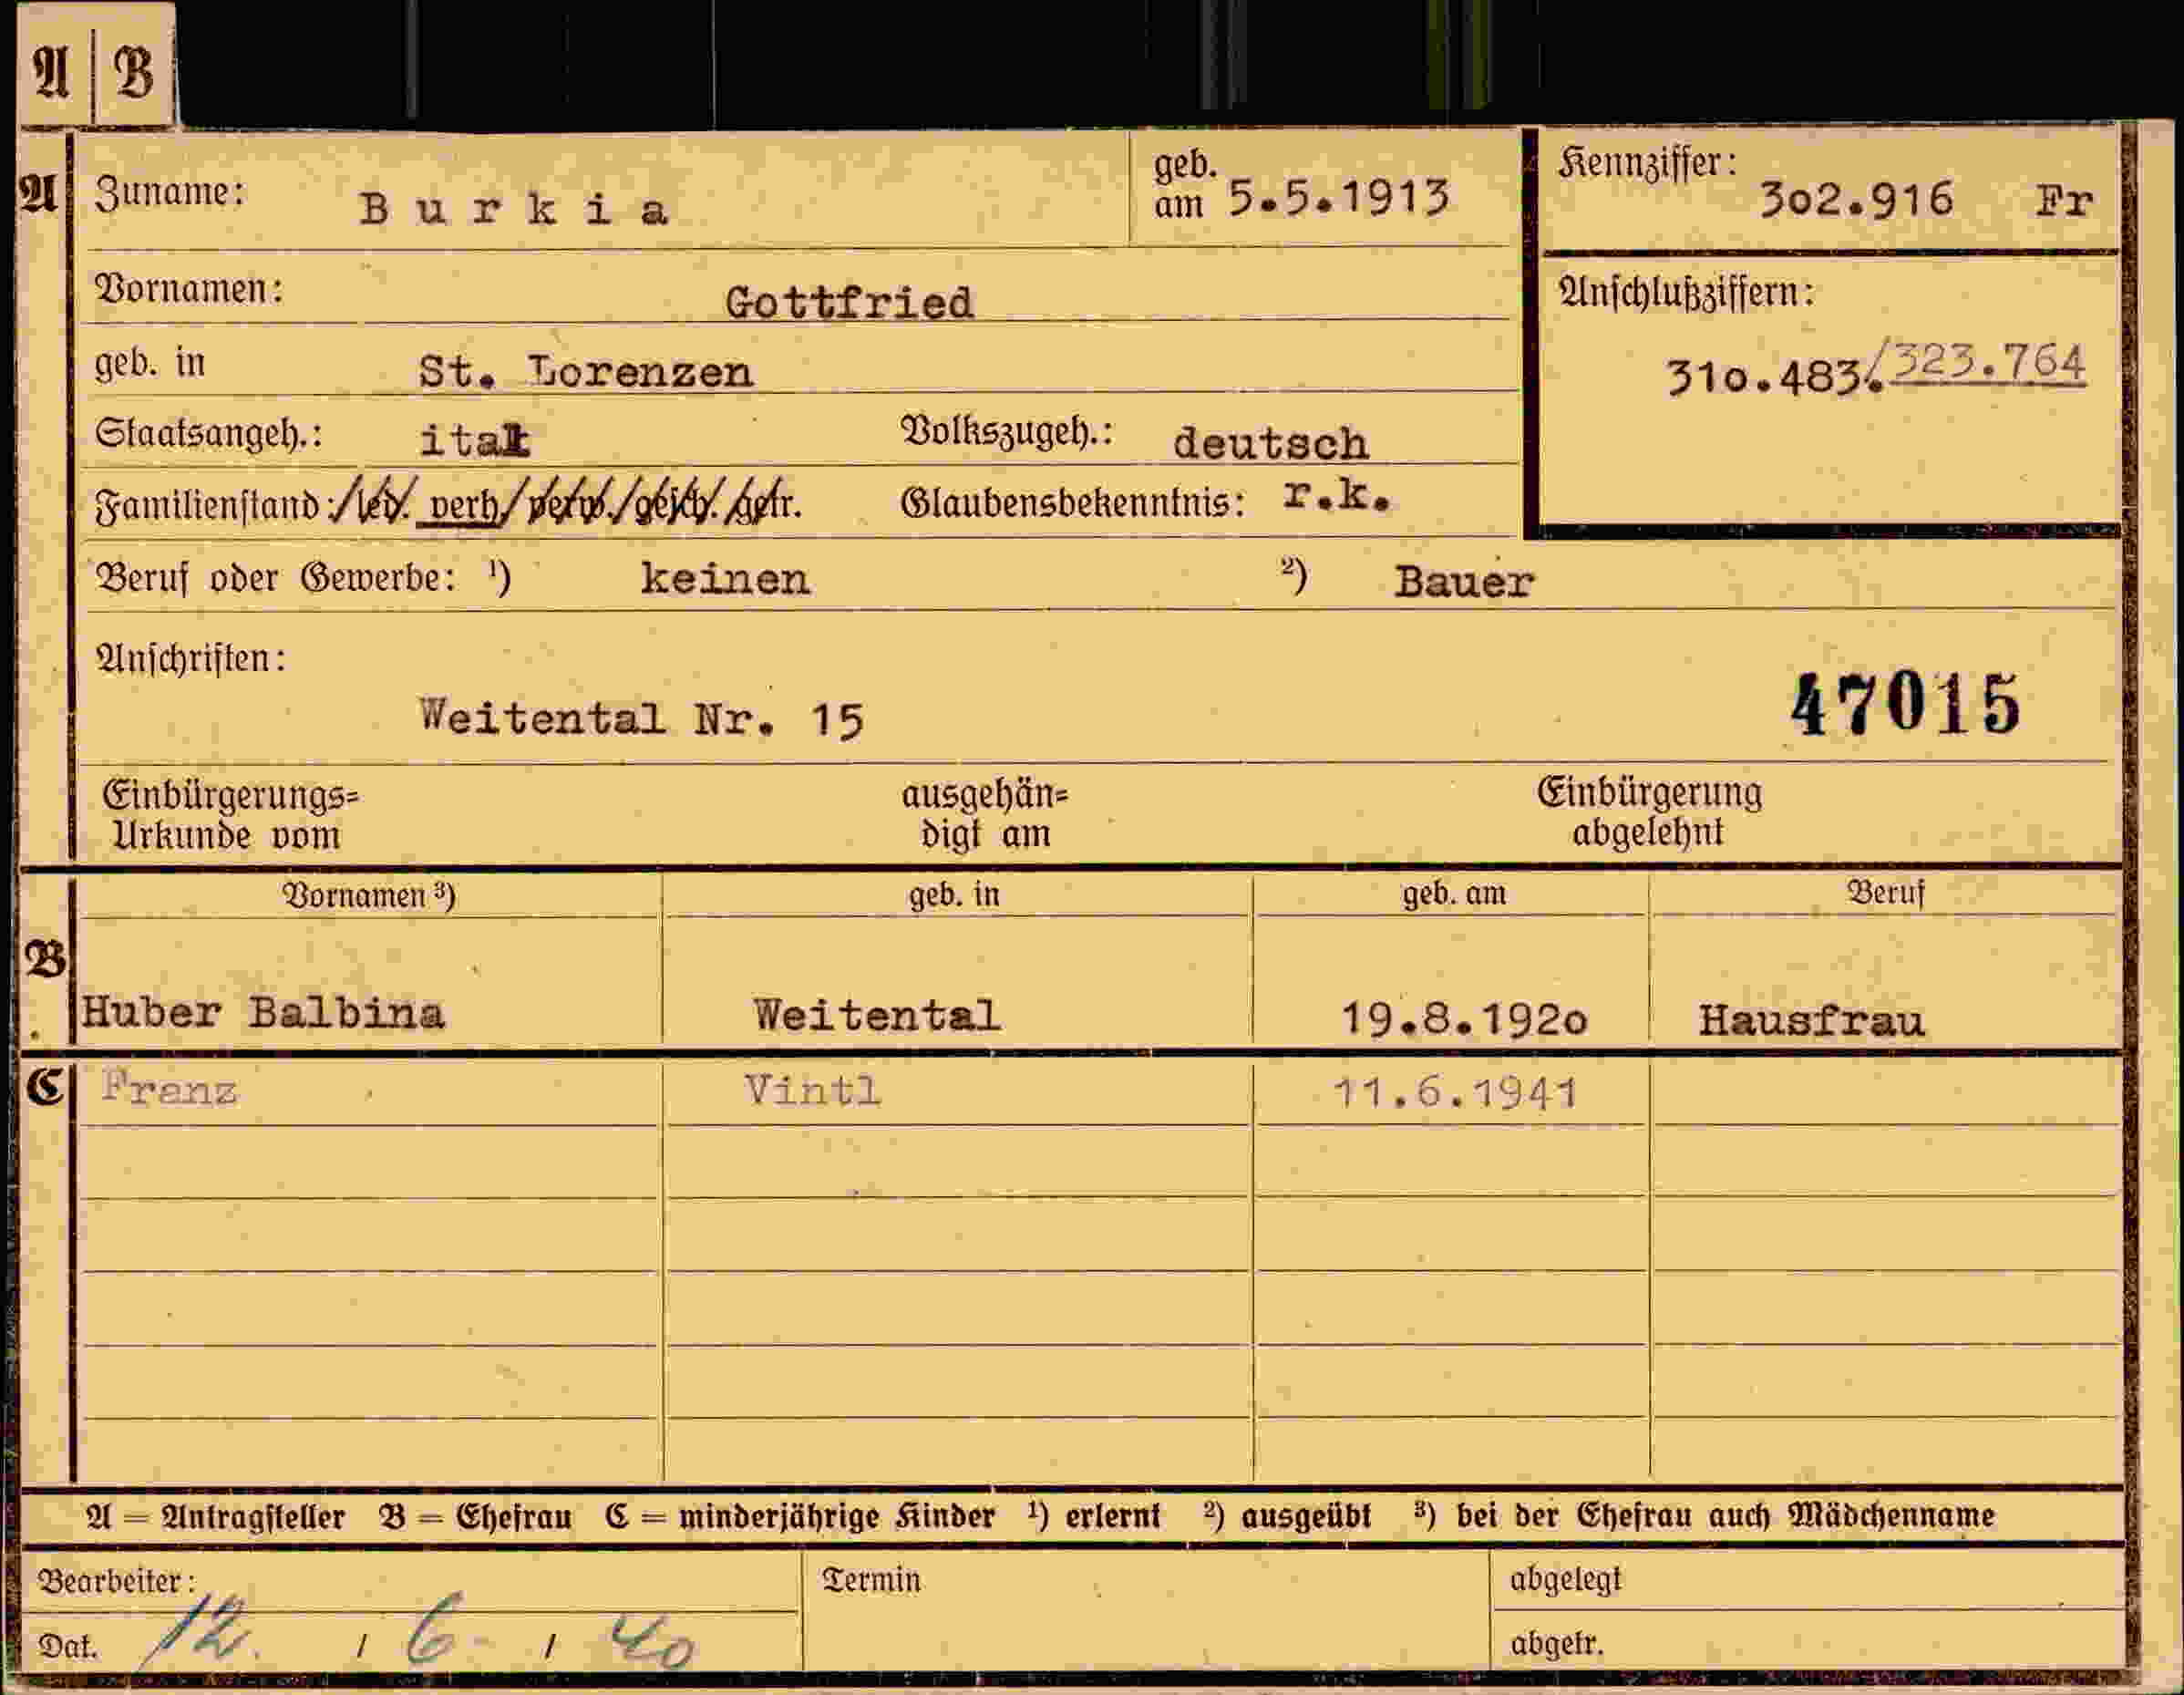 A | B
A Zuname: Burkia geb. am 5.5.1913 Kennziffer: 302.916 Fr
Vornamen: Gottfried Anschlußziffern:
geb. in St. Lorenzen 310.483./323.764
Staatsangeh.: ital Volkszugeh.: deutsch
Familienstand: /led. verh/ verw./gesch./getr. Glaubensbekenntnis: r.k.
Beruf oder Gewerbe: ¹) keinen ²) Bauer
Anschriften:
Weitental Nr. 15 47015
Einbürgerungs= ausgehän= Einbürgerung
Urkunde vom digt am abgelehnt
Vornamen ³) geb. in geb. am Beruf
B
Huber Balbina Weitental 19.8.1920 Hausfrau
C Franz Vintl 11.6.1941
A = Antragsteller B = Ehefrau C = minderjährige Kinder ¹) erlernt ²) ausgeübt ³) bei der Ehefrau auch Mädchenname
Bearbeiter: Termin abgelegt
Dat. 12. / 6 / 40 abgetr.